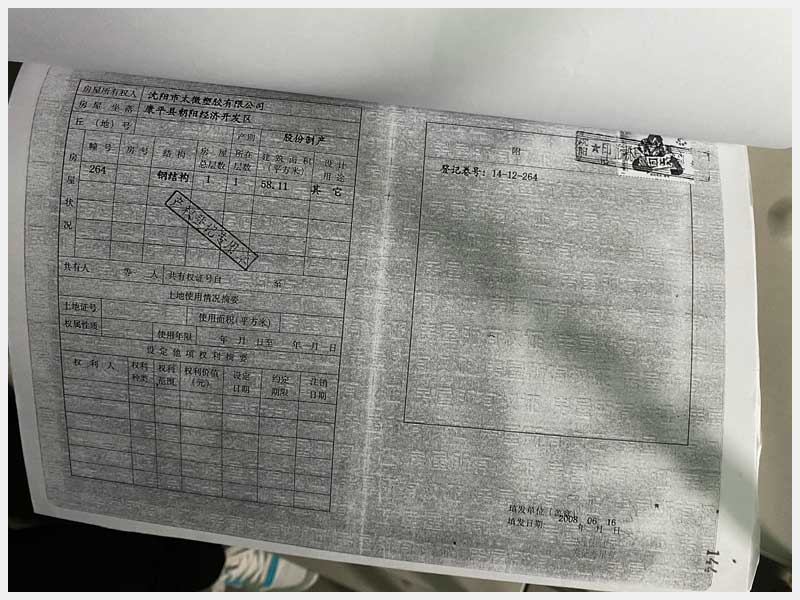 房屋所有权人 沈阳市太微塑胶有限公司
房屋坐落 康平县朝阳经济开发区
丘（地）号 产别 股份制产
房屋状况
幢号 房号 结构 房屋总层数 所在层数 建筑面积（平方米） 设计用途
264 钢结构 1 1 58.11 其它
产权登记专用
共有人 等 人 共有权证号自 至
土地使用情况摘要
土地证号 使用面积(平方米)
权属性质 使用年限 年 月 日至 年 月 日
设定他项权利摘要
权利人 权利种类 权利范围 权利价值（元） 设定日期 约定期限 注销日期
附
登记卷号: 14-12-264
填发单位（盖章）
填发日期 2008 年 06 月 16 日
144